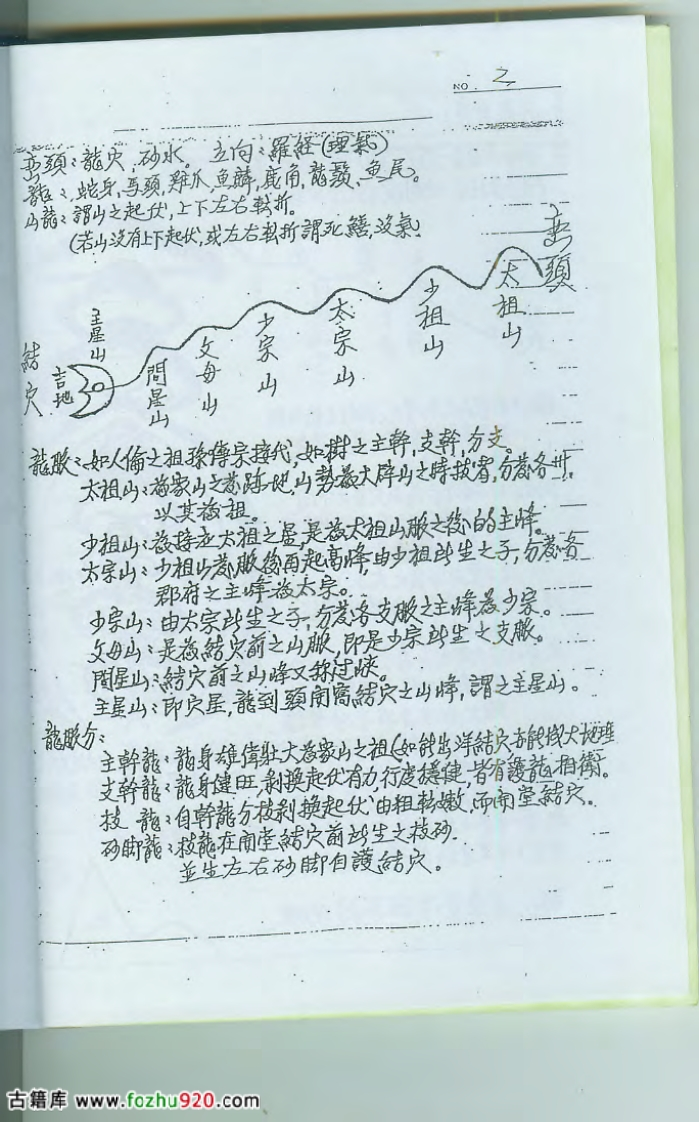 NO. 2
巒頭：龍穴，砂水。 立向：羅經（理氣）
龍：蛇身，馬頭，雞爪，魚鱗，鹿角，龍鬚，魚尾。
山龍：謂山之起伏，上下左右転折。
（若山沒有上下起伏，或左右転折謂死鱔，沒氣）
巒頭
太祖山
少祖山
太宗山
少宗山
父母山
間星山
主星山
吉地
結穴
龍脈：如人倫之祖孫傳宗接代，如樹之主幹，支幹，分支。
太祖山：為家山之發跡地，山勢最大群山之特拔者，分發各州，
以其為祖。
少祖山：為接近太祖之星，是為太祖山脈之後的主峰。
太宗山：少祖山發脈後再起高峰，由少祖所生之子，分發各
郡府之主峰為太宗。
少宗山：由太宗所生之子，分發各支脈之主峰為少宗。
父母山：是為結穴前之山脈，即是少宗所生之支脈。
間星山：結穴前之山峰又称过峽。
主星山：即穴星，龍到頭開窩結穴之山峰，謂之主星山。
龍脈分：
主幹龍：龍身雄偉壯大為家山之祖（如能出洋結穴亦能成大地理
支幹龍：龍身健旺，剥換起伏有力，行度穩健，皆有護龍相衛。
枝 龍：自幹龍分枝剥換起伏由粗転嫩，而開堂結穴。
砂脚龍：枝龍在開堂結穴前所生之枝砂．
並生左右砂脚自護結穴。
古籍库 www.fozhu920.com